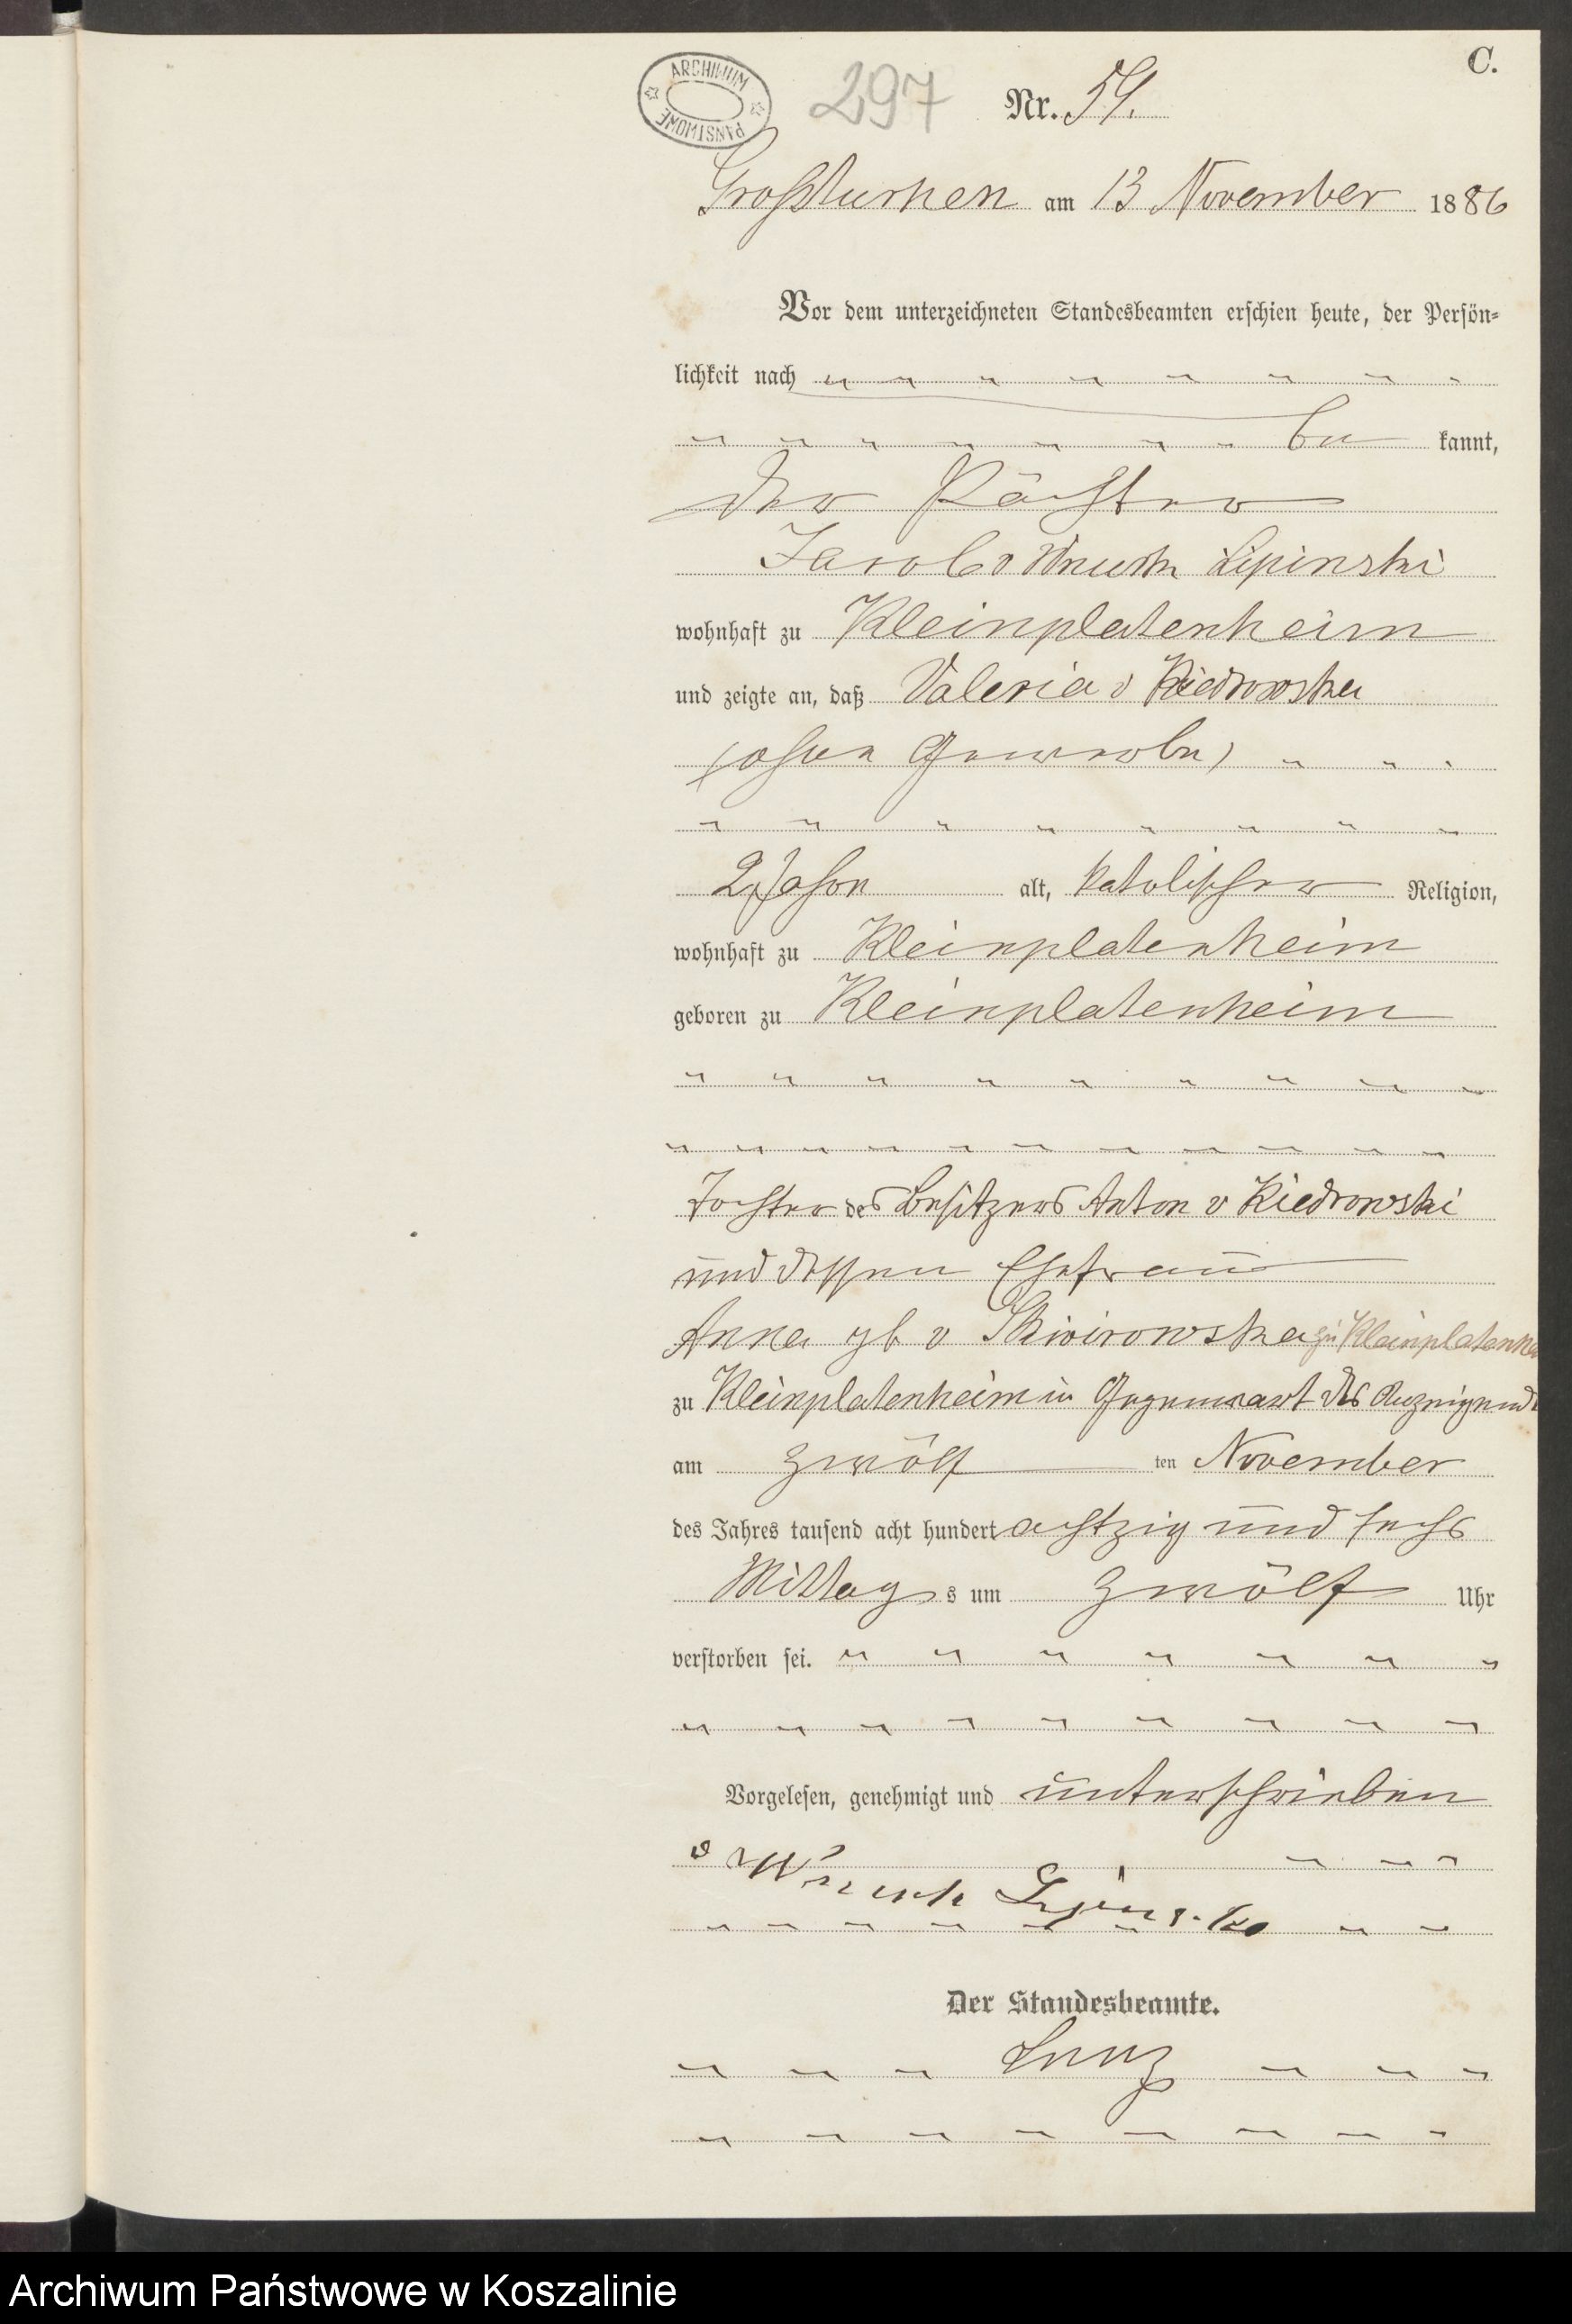 C.
ARCHIWUM PAŃSTWOWE
297 Nr. 54.
Großtuchen am 13 November 1886
Vor dem unterzeichneten Standesbeamten erschien heute, der Persön-
lichkeit nach
be kannt,
der Pächter
Jacob v Wnuck Lipinski
wohnhaft zu Kleinplatenheim
und zeigte an, daß Valeria v Kiedrowska
(ohne Gewerbe)
2 Jahre alt, katolischer Religion,
wohnhaft zu Kleinplatenheim
geboren zu Kleinplatenheim
Tochter des Besitzers Anton v Kiedrowski
und dessen Ehefrau
Anna gb v zu Kleinplatenhei
zu Kleinplatenheim in Gegenwart des Anzeigende
am zwölf ten November
des Jahres tausend acht hundert achtzig und sechs
Mittag s um zwölf Uhr
verstorben sei.
Vorgelesen, genehmigt und unterschrieben
v Wnuck Lipinski
Der Standesbeamte.
Archiwum Państwowe w Koszalinie